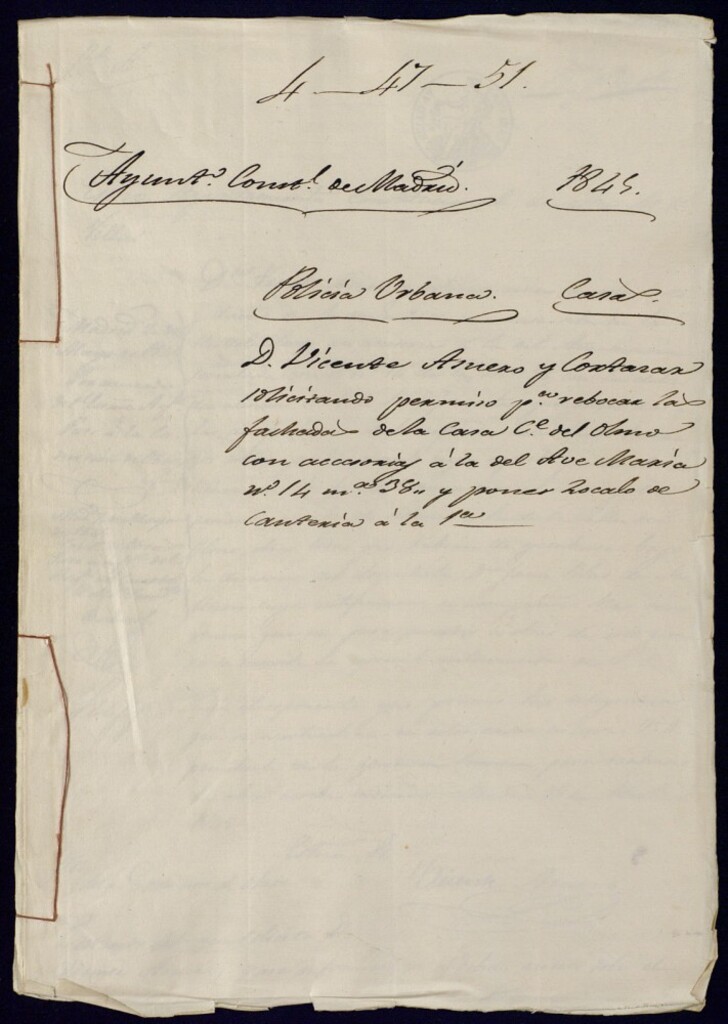 4 — 47 — 51.
Ayuntº. Constl. de Madrid. 1845.
Policía Urbana. Casas.
D. Vicente Amero y Contaxar
solicitando permiso pª. rebocar las
fachadas de la Casa Ce. del Olmo
con accesorias á la del Ave María
nº. 14 mª. 38,, y poner zocalo de
Cantería á la 1ª